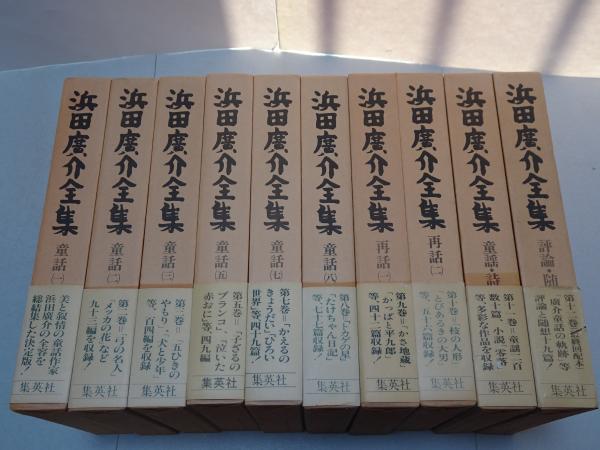 浜田廣介全集
童話(一)
美と叙情の童話作家
浜田廣介の全容を
総結集した決定版!
集英社
浜田廣介全集
童話(二)
第二巻=「弓の名人」
「メッカの花」など
九十二編を収録!
集英社
浜田廣介全集
童話(三)
第三巻=「五ひきの
やもり」「犬と少年」
等、百四編を収録!
集英社
浜田廣介全集
童話(五)
第五巻=「子ざるの
ブランコ」「泣いた
赤おに」等、四九編
集英社
浜田廣介全集
童話(七)
第七巻=「かえるの
きょうだい」「ひろい
世界」等、四十九篇
集英社
浜田廣介全集
童話(八)
第八巻「トカゲの星」
「たけちゃん日記」
等、七十篇収録!
集英社
浜田廣介全集
再話(一)
第九巻=「かさ地蔵」
「かっぱと平九郎」
等、四十一篇収録!
集英社
浜田廣介全集
再話(二)
第十巻=「枝の人形」
「とびあるきの大男」
等、五十六篇収録!
集英社
浜田廣介全集
童謡・詩
第十一巻=童謡二百
数十篇、小説、
等、多彩な作品を収録!
集英社
浜田廣介全集
評論・随
第十二巻
「廣介童話の軌跡」等
評論と随想十九篇!
集英社